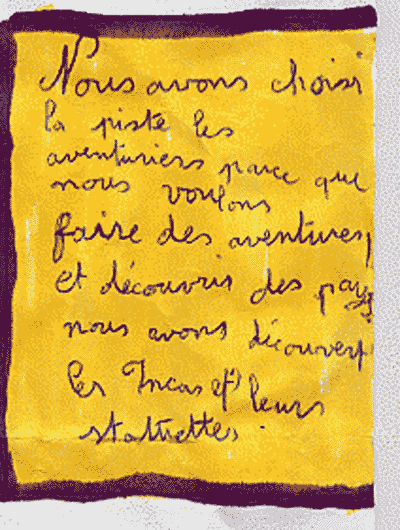 Nous avons choisi
la piste les
aventuriers parce que
nous voulons
faire des aventures,
et découvris des pays
nous avons découvert
les Incas et leurs
stattuettes.